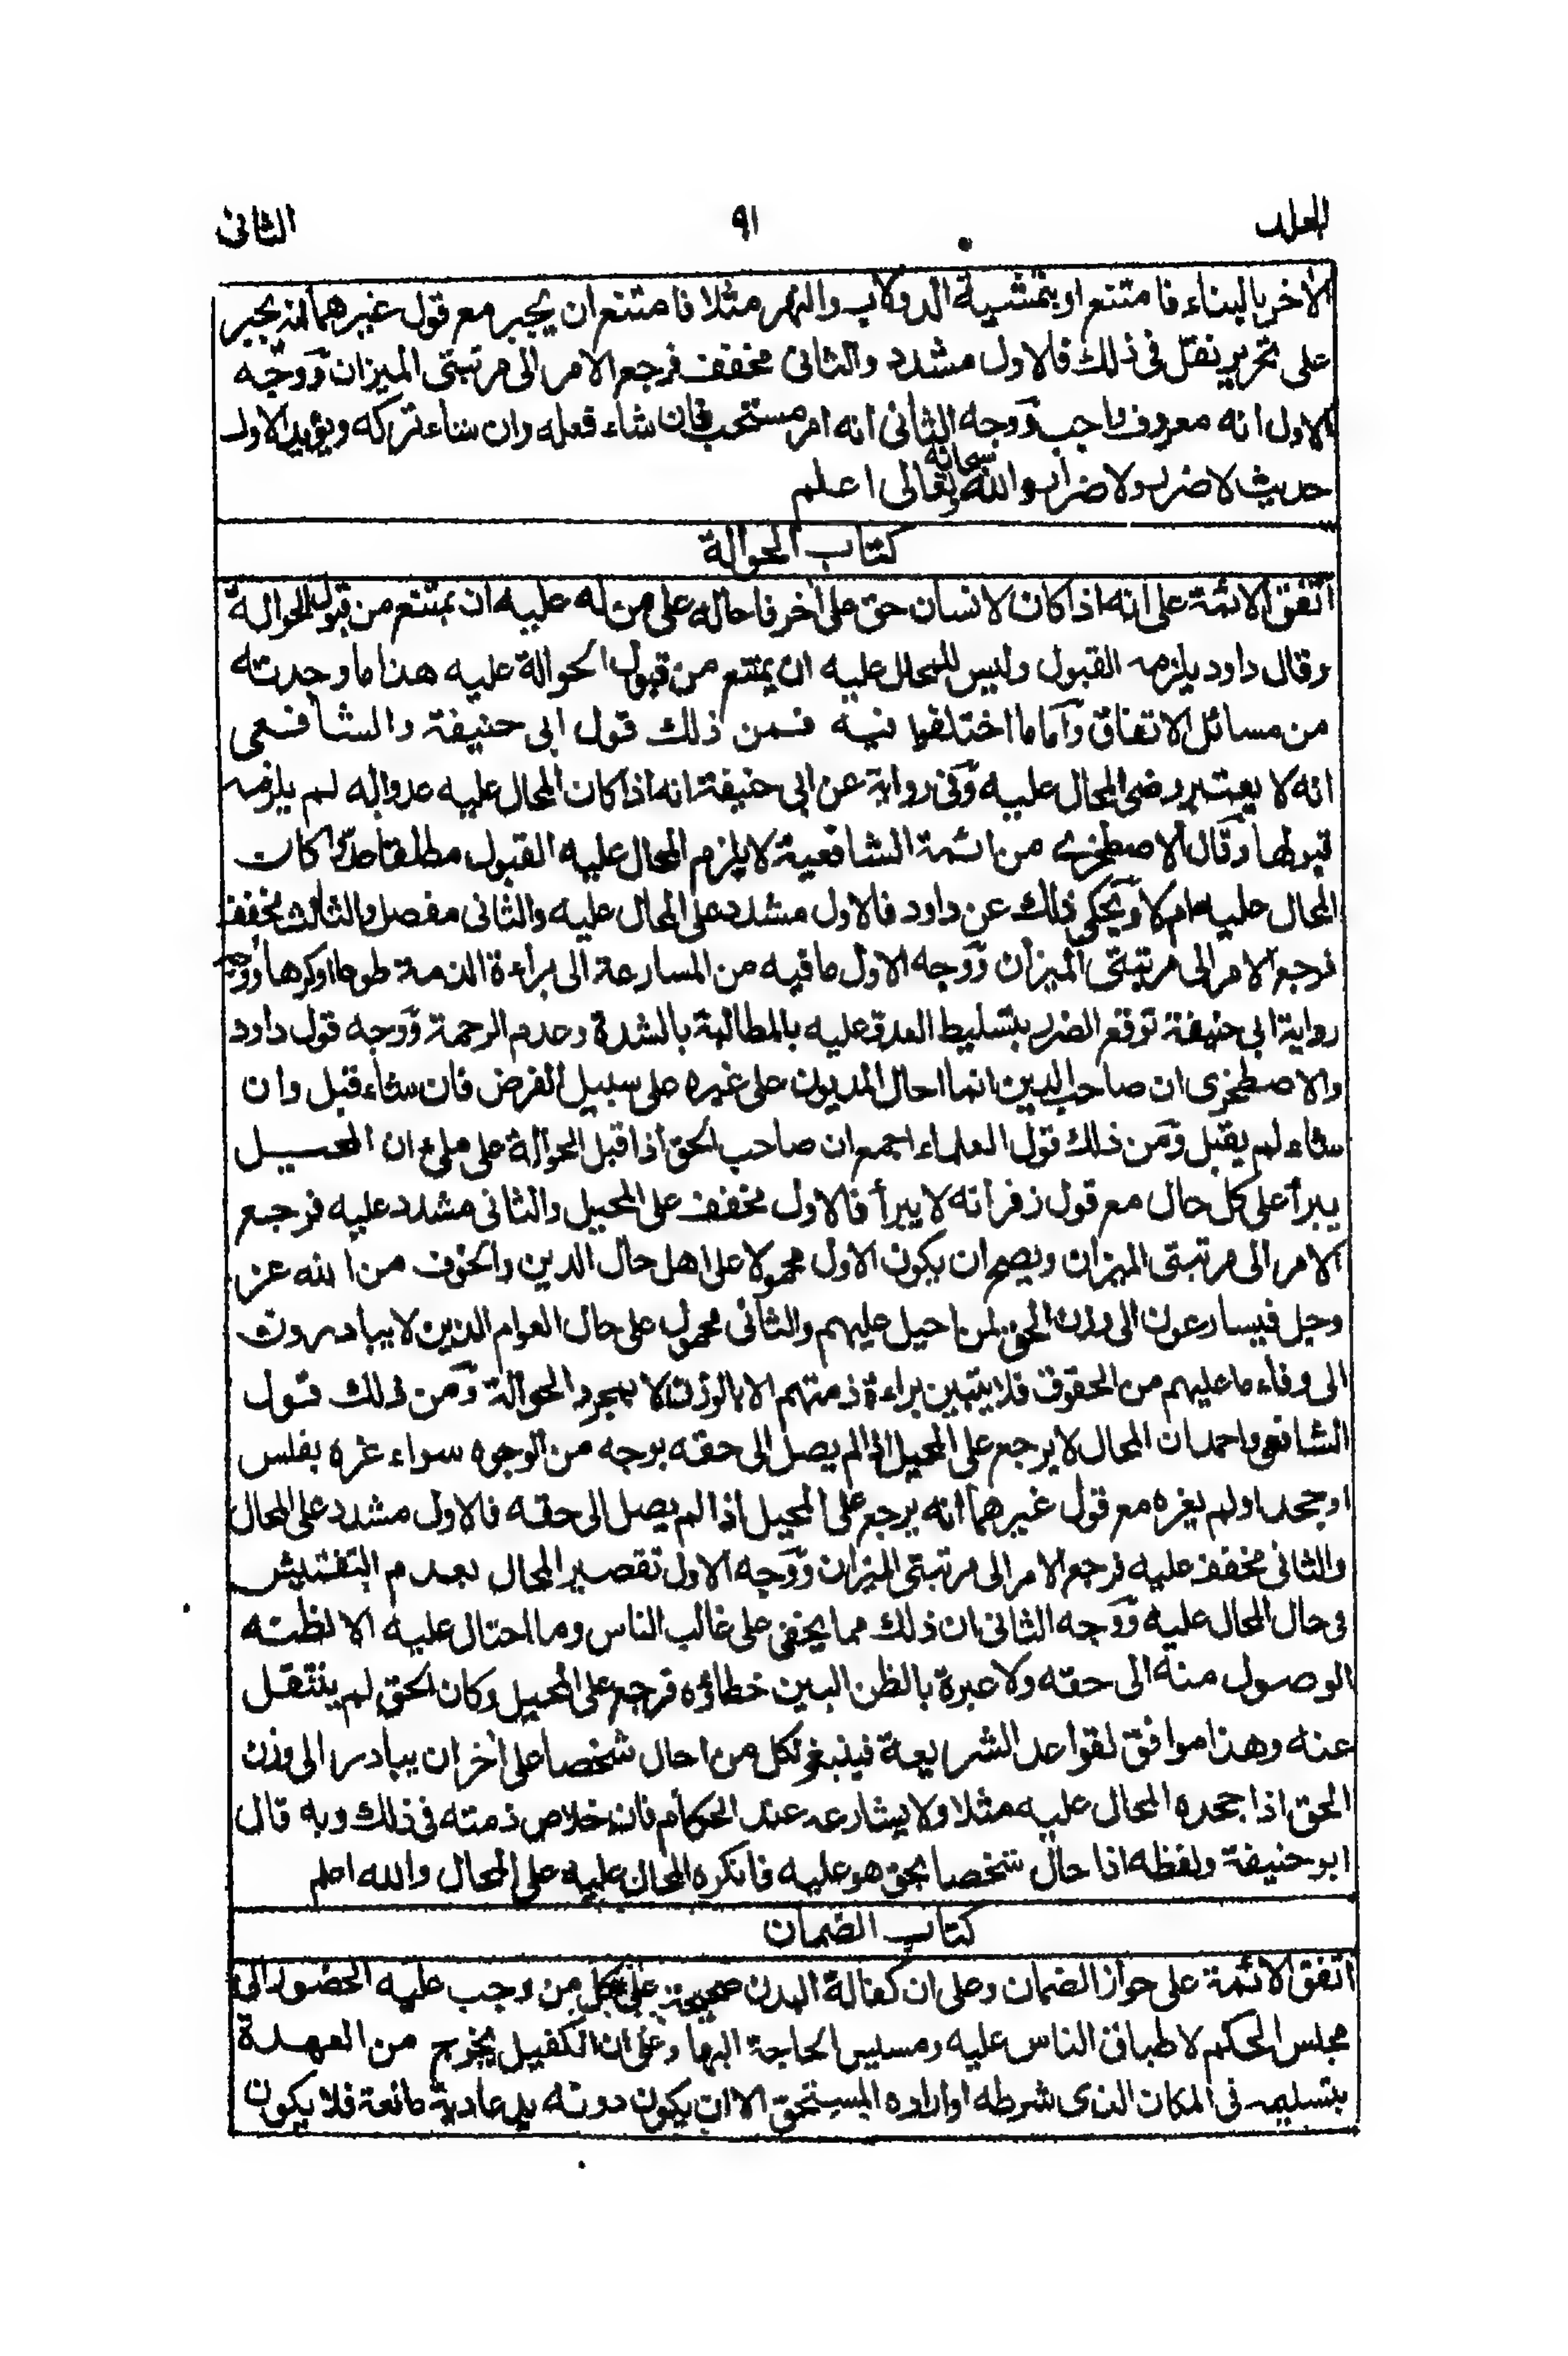 المجلد ٩١ الثانى
الآخر بالبناء فامتنع او بتمشية الدولاب والنهر مثلا فامتنع ان يجبر مع قول غيرهما انه يجبر
على تحرير نقل فى ذلك فالاول مشدد والثانى مخفف فرجع الامر الى مرتبتى الميزان ووجه
الاول انه معروف واجب ووجه الثانى انه امر مستحب فان شاء فعله وان شاء تركه ويؤيد الاول
حديث لا ضرر ولا ضرار والله سبحانه وتعالى اعلم
كتاب الحوالة
اتفق الائمة على انه اذا كان لانسان حق على آخر فاحاله على من له عليه ان يمتنع من قبول الحوالة
وقال داود يلزمه القبول وليس للمحال عليه ان يمتنع من قبول الحوالة عليه هذا ما وجدته
من مسائل الاتفاق واما ما اختلفوا فيه فمن ذلك قول ابى حنيفة والشافعى
انه لا يعتبر رضى المحال عليه وفى رواية عن ابى حنيفة انه اذا كان المحال عليه عدوا له لم يلزمه
قبولها وقال الاصطخرى من ائمة الشافعية لا يلزم المحال عليه القبول مطلقا عدوا كان
المحال عليه ام لا ويحكى ذلك عن داود فالاول مشدد على المحال عليه والثانى مفصل والثالث مخفف
فرجع الامر الى مرتبتى الميزان ووجه الاول ما فيه من المسارعة الى براءة الذمة طوعا او كرها ووجه
رواية ابى حنيفة توقع الضرر بتسليط العدو عليه بالمطالبة بالشدة وعدم الرحمة ووجه قول داود
والاصطخرى ان صاحب الدين انما احال المديون على غيره على سبيل الفرض فان شاء قبل وان
شاء لم يقبل ومن ذلك قول العلماء اجمع ان صاحب الحق اذا قبل الحوالة على ملئ ان المحيل
يبرأ على كل حال مع قول زفر انه لا يبرأ فالاول مخفف على المحيل والثانى مشدد عليه فرجع
الامر الى مرتبتى الميزان ويصح ان يكون الاول محمولا على اهل حال الدين والخوف من الله عز
وجل فيسارعون الى وزن الحق لمن احيل عليهم والثانى محمول على حال العوام الذين لا يبادرون
الى وفاء ما عليهم من الحقوق فلا يتبين براءة ذمتهم الا بالوزن لا بمجرد الحوالة ومن ذلك قول
الشافعى واحمد ان المحال لا يرجع على المحيل اذا لم يصل الى حقه بوجه من الوجوه سواء غره بفلس
او جحد او لم يغره مع قول غيرهما انه يرجع على المحيل اذا لم يصل الى حقه فالاول مشدد على المحال
والثانى مخفف عليه فرجع الامر الى مرتبتى الميزان ووجه الاول تقصير المحال بعدم التفتيش
فى حال المحال عليه ووجه الثانى ان ذلك مما يخفى على غالب الناس وما احتال عليه الا لظنه
الوصول منه الى حقه ولا عبرة بالظن البين خطاؤه فرجع على المحيل وكان الحق لم ينتقل
عنه وهذا موافق لقواعد الشريعة فينبغى لكل من احال شخصا على آخر ان يبادر الى وزن
الحق اذا جحده المحال عليه مثلا ولا يشارعه عند الحكام فان خلاص ذمته فى ذلك وبه قال
ابو حنيفة ولفظه اذا حال شخصا بحق هو عليه فانكره المحال عليه على المحال والله اعلم
كتاب الضمان
اتفق الائمة على جواز الضمان وعلى ان كفالة البدن صحيحة على كل من وجب عليه الحضور الى
مجلس الحكم لاطباق الناس عليه ومسيس الحاجة اليها وعلى ان الكفيل يخرج من العهدة
بتسليمه فى المكان الذى شرطه او اراده المستحق الا ان يكون دونه يد عادية مانعة فلا يكون